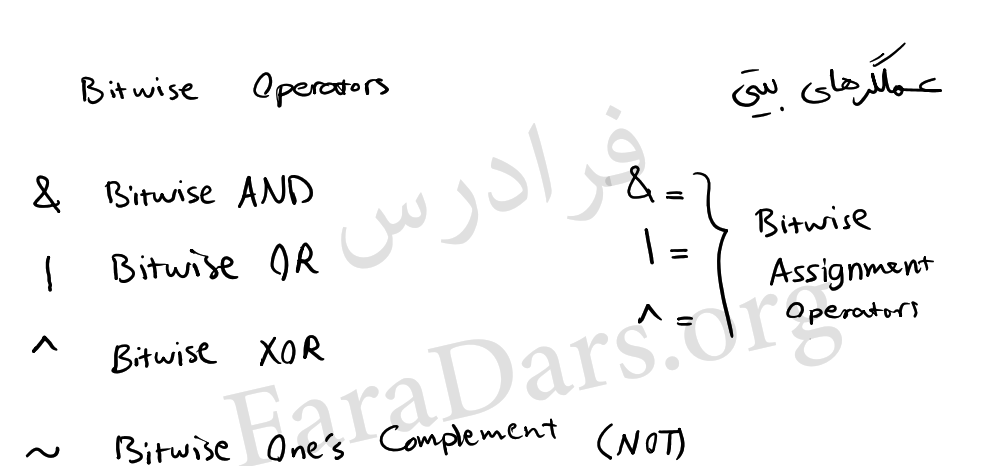 Bitwise Operators
عملگرهای بیتی
& Bitwise AND
| Bitwise OR
^ Bitwise XOR
~ Bitwise One's Complement (NOT)
& =
| =
^ =
Bitwise
Assignment
Operators
فرادرس
FaraDars.org